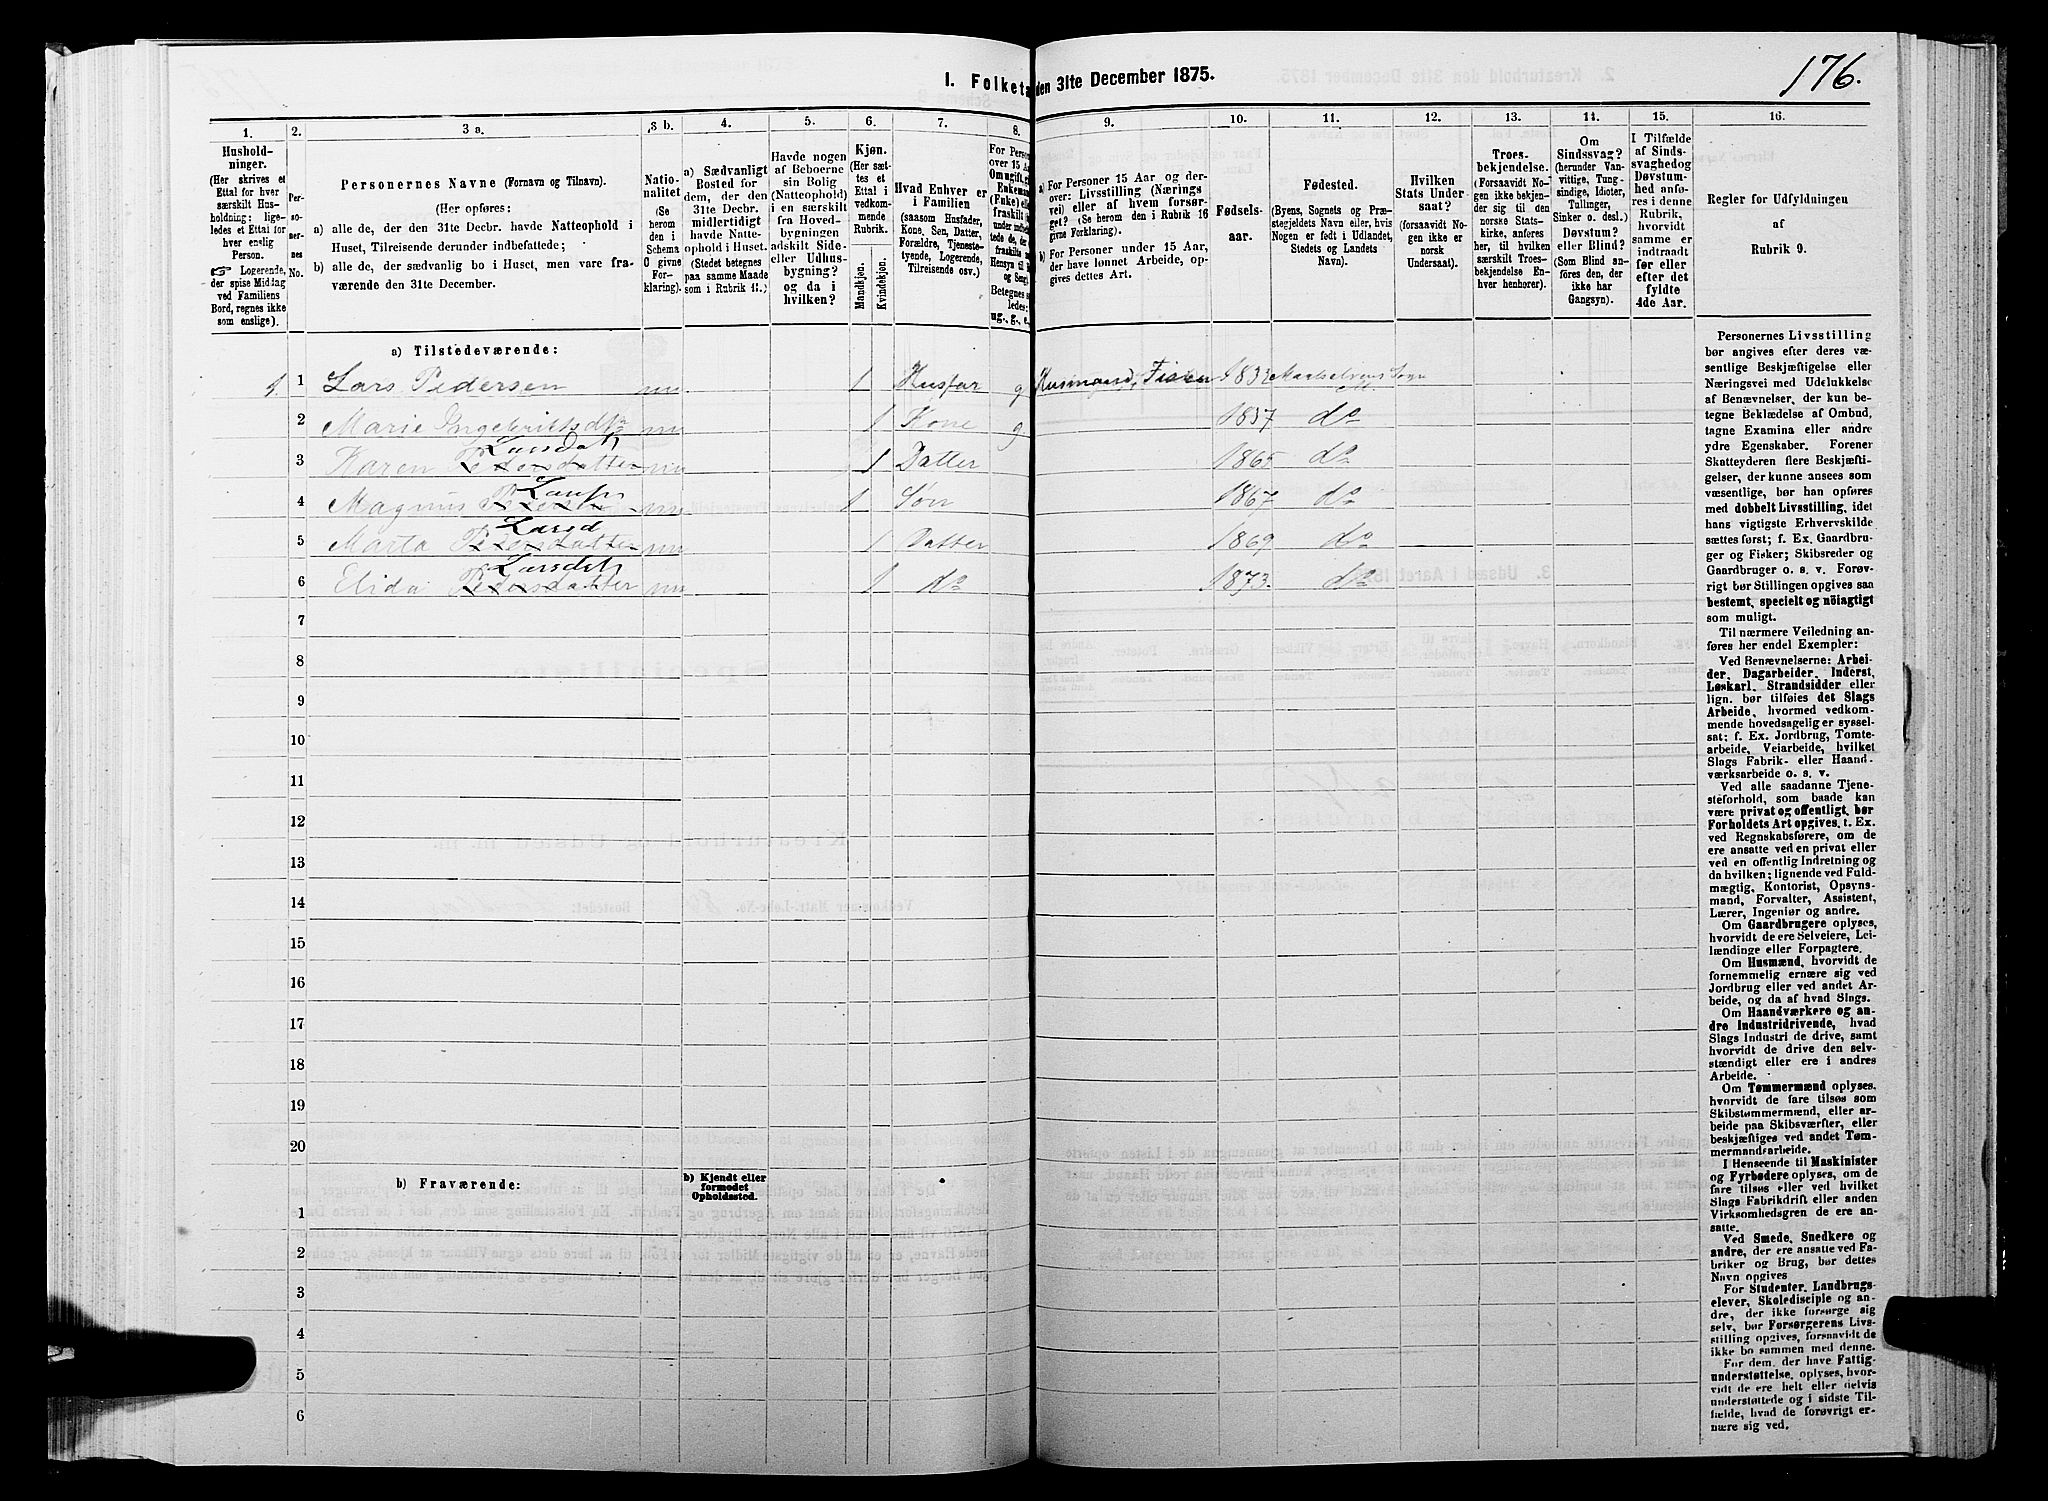 176.
I. Folketa
den 31te December 1875.
1.
2.
3 a.
3 b.
4.
5.
6.
7.
8.
9.
10.
11.
12.
13.
14.
15.
16.
Hushold-
ninger.
(Her skrives et
Ettal for hver
særskilt Hus-
holdning; lige-
ledes et Ettal for
hver enslig
Person.
☞ Logerende,
der spise Middag
ved Familiens
Bord, regnes ikke
som enslige).
Per-
so-
ner-
nes
No.
Personernes Navne (Fornavn og Tilnavn).
(Her opføres:
a) alle de, der den 31te Decbr. havde Natteophold i
Huset, Tilreisende derunder indbefattede;
b) alle de, der sædvanlig bo i Huset, men vare fra-
værende den 31te December.
Natio-
nalitet
(Se
herom
den i
Schema
O givne
For-
klaring).
a) Sædvanligt
Bosted for
dem, der den
31te Decbr.
midlertidigt
havde Natte-
ophold i Huset.
(Stedet betegnes
paa samme Maade
som i Rubrik 11.)
Havde nogen
af Beboerne
sin Bolig
(Natteophold)
i en særskilt
fra Hoved-
bygningen
adskilt Side-
eller Udhus-
bygning?
og da i
hvilken?
Kjøn.
(Her sæt-
tes et
Ettal i
vedkom-
mende
Rubrik.
Mandkjøn.
Kvindekjøn.
Hvad Enhver er
i Familien
(saasom Husfader,
Kone, Søn, Datter,
Forældre, Tjeneste-
tyende, Logerende,
Tilreisende osv.)
For Person
over 15 Aa
Om ugift, gi
Enkeman
(Enke) elle
fraskilt
ledes:
ug., g., e.,
a) For Personer 15 Aar og der-
over: Livsstilling (Nærings
vei) eller af hvem forsør-
get? (Se herom den i Rubrik 16
givne Forklaring.)
b) For Personer under 15 Aar,
der have lønnet Arbeide, op-
gives dettes Art.
Fødsels-
aar.
Fødested.
(Byens, Sognets og Præ-
stegjeldets Navn eller, hvis
Nogen er født i Udlandet,
Stedets og Landets
Navn).
Hvilken
Stats Under-
saat?
(forsaavidt No-
gen ikke er
norsk
Undersaat).
Troes-
bekjendelse.
(Forsaavidt No-
gen ikke bekjen-
der sig til den
norske Stats-
kirke, anføres
her, til hvilken
særskilt Troes-
bekjendelse En-
hver henhører).
Om
Sindssvag?
(herunder Van-
vittige, Tung-
sindige, Idioter,
Tullinger,
Sinker o. desl.)
Døvstum?
eller Blind?
(Som Blind an-
føres den, der
ikke har
Gangsyn).
I Tilfælde
af Sinds-
svaghed og
Døvstum-
hed anfø-
res i denne
Rubrik,
hvorvidt
samme er
indtraadt
før eller
efter det
fyldte
4de Aar.
Regler for Udfyldningen
af
Rubrik 9.
a) Tilstedeværende:
1. 1 Lars Pedersen nn 1 Husfar g Husmand, Fisker 1832 Maalselvens Sogn
2 Marie Ingebrigtsdtr nn 1 Kone g 1837 do
Larsdat
3 Karen Pedersdatter nn 1 Datter 1865 do
Larsen
4 Magnus Pedersen nn 1 Søn 1867 do
Larsd
5 Marta Pedersdatter nn 1 Datter 1869 do
Larsdat
6 Elida Pedersdatter nn 1 do 1873. do
7
8
9
10
11
12
13
14
15
16
17
18
19
20
b) Fraværende:
b) Kjendt eller
formodet
Opholdssted.
1
2
3
4
5
6
Personernes Livsstilling
bør angives efter deres væ-
sentlige Beskjæftigelse eller
Næringsvei med Udelukkelse
af Benævnelser, der kun be-
tegne Beklædelse af Ombud,
tagne Examina eller andre
ydre Egenskaber. Forener
Skatteyderen flere Beskjæfti-
gelser, der kunne ansees som
væsentlige, bør han opføres
med dobbelt Livsstilling, idet
hans vigtigste Erhvervskilde
sættes først; f. Ex. Gaardbru-
ger og Fisker; Skibsreder og
Gaardbruger o. s. v. Forøv-
rigt bør Stillingen opgives saa
bestemt, specielt og nöiagtigt
som muligt.
Til nærmere Veiledning an-
føres her endel Exempler:
Ved Benævnelserne: Arbei-
der, Dagarbeider, Inderst,
Løskarl, Strandsidder eller
lign. bør tilføies det Slags
Arbeide, hvormed vedkom-
mende hovedsagelig er syssel-
sat; f. Ex. Jordbrug, Tomte-
arbeide, Veiarbeide, hvilket
Slags Fabrik- eller Haand-
værksarbeide o. s. v.
Ved alle saadanne Tjene-
steforhold, som baade kan
være privat og offentligt, bør
Forholdets Art opgives, t. Ex.
ved Regnskabsførere, om de
ere ansatte ved en privat eller
ved en offentlig Indretning og
da hvilken; lignende ved Fuld-
mægtig, Kontorist, Opsyns-
mand, Forvalter, Assistent,
Lærer, Ingeniør og andre.
Om Gaardbrugere oplyses,
hvorvidt de ere Selveiere, Lei-
lændinge eller Forpagtere.
Om Husmænd, hvorvidt de
fornemmelig ernære sig ved
Jordbrug eller ved andet Ar-
beide, og da af hvad Slags.
Om Haandværkere og an-
dre Industridrivende, hvad
Slags Industri de drive, samt
hvorvidt de drive den selv-
stændigt eller ere i andres
Arbeide.
Om Tømmermænd oplyses,
hvorvidt de fare tilsøs som
Skibstømmermænd, eller ar-
beide paa Skibsværfter, eller
beskjæftiges ved andet Tøm-
mermandsarbeide.
I Henseende til Maskinister
og Fyrbødere oplyses, om de
fare tilsøs eller ved hvilket
Slags Fabrikdrift eller anden
Virksomhedsgren de ere an-
satte.
Ved Smede, Snedkere og
andre, der ere ansatte ved Fa-
briker og Brug, bør dettes
Navn opgives
For Studenter, Landbrugs-
elever, Skoledisciple og an-
dre, der ikke forsørge sig
selv, bør Forsørgerens Livs-
stilling opgives, forsaavidt de
ikke bo sammen med denne.
For dem, der have Fattig-
understøttelse, oplyses, hvor-
vidt de ere helt eller delvis
understøttede og i sidste Til-
fælde, hvad de forøvrigt er-
nære sig ved.